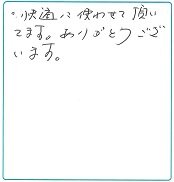 ・快適に使わせて頂い
てます。ありがとうござ
います。